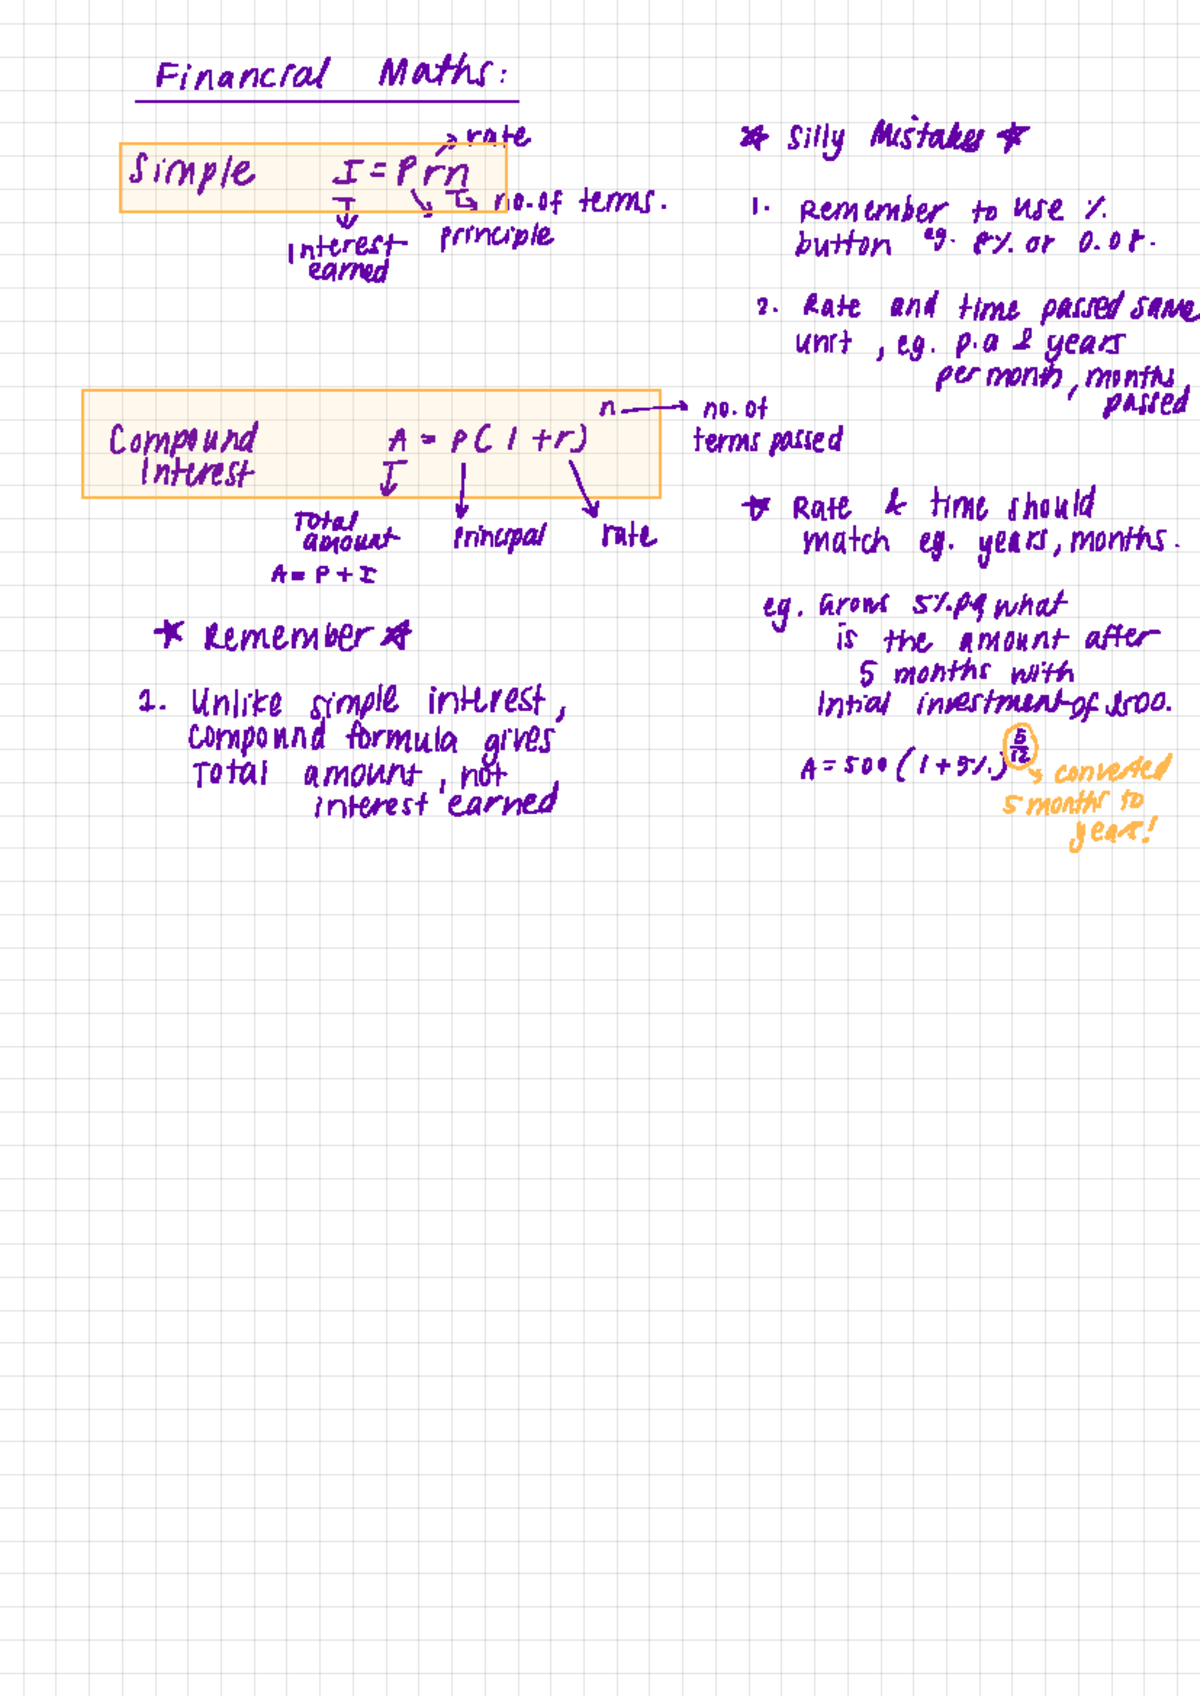 Financial Maths:
Simple I = Prn
rate
no. of terms.
principle
Interest
earned
Compound
Interest
A = P(1+r)^n
no. of
terms passed
Total
amount
A = P + I
Principal
rate
★ Remember ★
1. Unlike simple interest,
compound formula gives
Total amount, not
interest earned
★ Silly Mistakes ★
1. Remember to use %
button eg. 8% or 0.08.
2. Rate and time passed same
unit, eg. p.a & years
per month, months
passed
★ Rate & time should
match eg. years, months.
eg. Grows 5% pa what
is the amount after
5 months with
Intial investment of $500.
A = 500 (1+5%)^5/12
converted
5 months to
years!